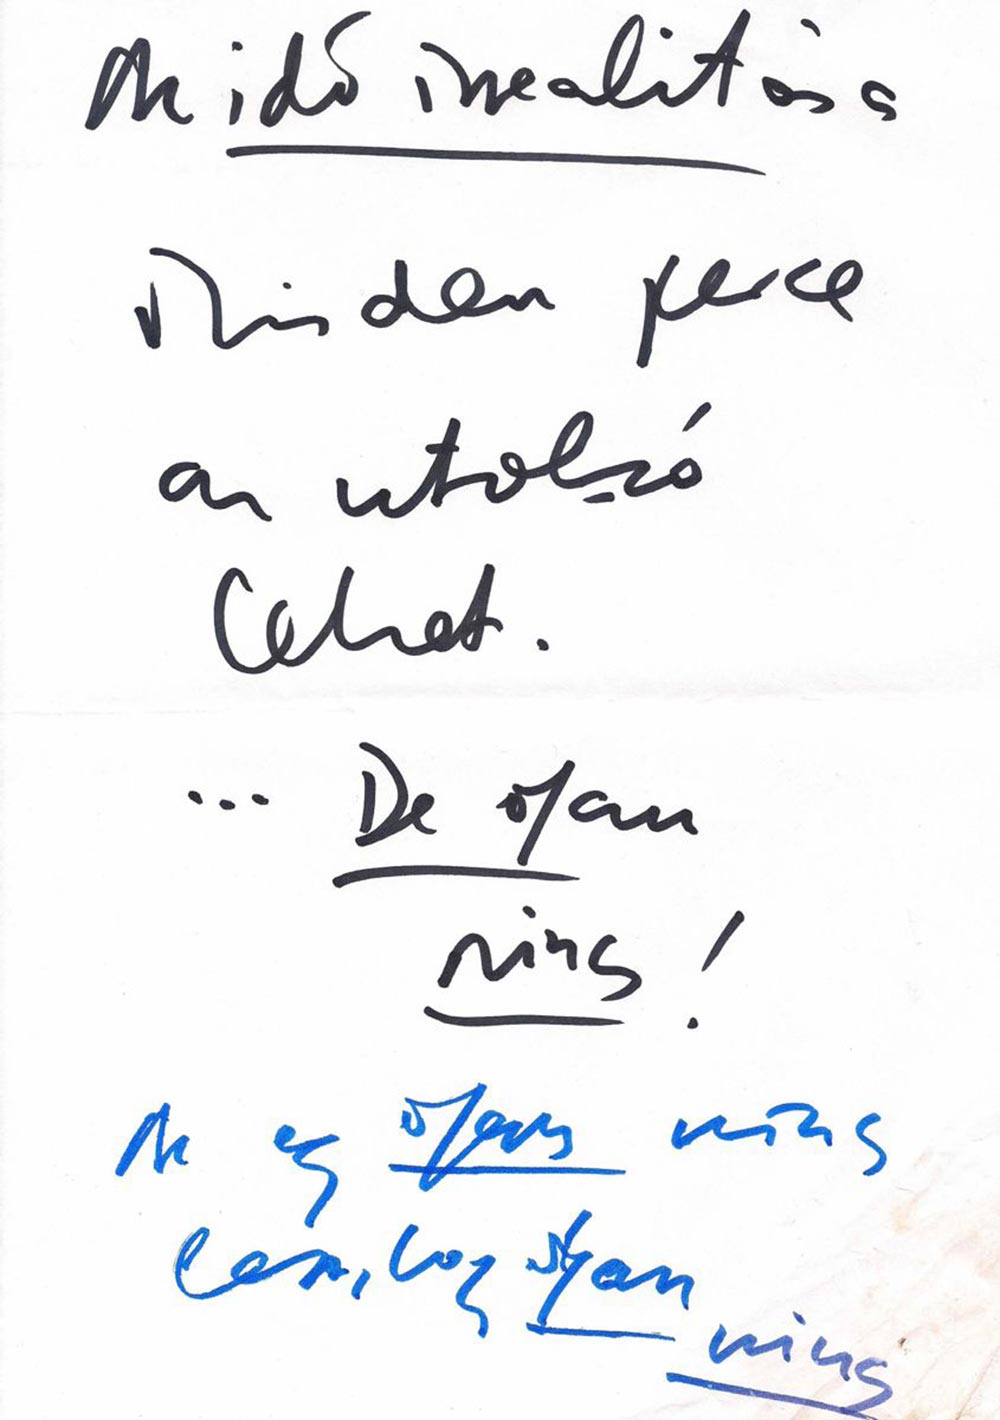 Az idő irrealitása
Minden perce
az utolsó
lehet.
... De olyan
nincs!
Az egy olyan nincs
lesz, hogy olyan
nincs